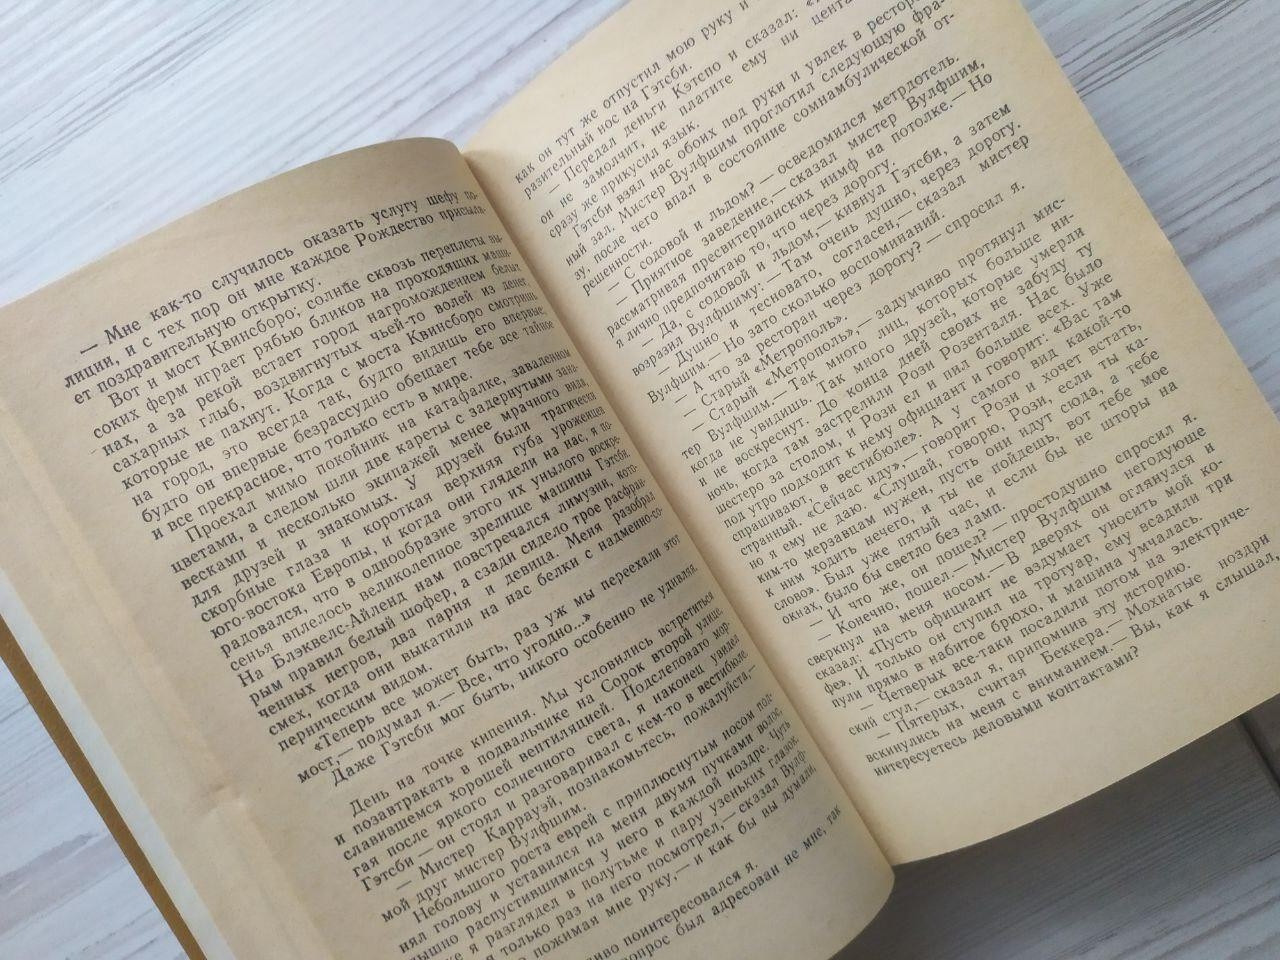 — Мне как-то случилось оказать услугу шефу по-
лиции, и с тех пор он мне каждое Рождество присыла-
ет поздравительную открытку.
Вот и мост Квинсборо; солнце сквозь переплеты вы-
соких ферм играет рябью бликов на проходящих маши-
нах, а за рекой встает город нагромождением белых
сахарных глыб, воздвигнутых чьей-то волей из денег,
которые не пахнут. Когда с моста Квинсборо смотришь
на город, это всегда так, будто видишь его впервые,
будто он впервые безрассудно обещает тебе все тайное
и все прекрасное, что только есть в мире.
Проехал мимо покойник на катафалке, заваленном
цветами, а следом шли две кареты с задернутыми зана-
весками и несколько экипажей менее мрачного вида,
для друзей и знакомых. У друзей были трагически
скорбные глаза и короткая верхняя губа уроженцев
юго-востока Европы, и когда они глядели на нас, я по-
радовался, что в однообразие этого их унылого воскре-
сенья вплелось великолепное зрелище машины Гэтсби.
На Блэквелс-Айленд нам повстречался лимузин, кото-
рым правил белый шофер, а сзади сидело трое расфран-
ченных негров, два парня и девица. Меня разобрал
смех, когда они выкатили на нас белки с надменно-со-
перническим видом.
«Теперь все может быть, раз уж мы переехали этот
мост,— подумал я.— Все, что угодно...»
Даже Гэтсби мог быть, никого особенно не удивляя.
День на точке кипения. Мы условились встретиться
и позавтракать в подвальчике на Сорок второй улице,
славившемся хорошей вентиляцией. Подслеповато мор-
гая после яркого солнечного света, я наконец увидел
Гэтсби — он стоял и разговаривал с кем-то в вестибюле.
— Мистер Каррауэй, познакомьтесь, пожалуйста,—
мой друг мистер Вулфшим.
Небольшого роста еврей с приплюснутым носом под-
нял голову и уставился на меня двумя пучками волос,
пышно распустившимися у него в каждой ноздре. Чуть
я разглядел в полутьме и пару узеньких глазок.
только раз на него посмотрел,— сказал Вулф-
пожимая мне руку,— и как бы вы думали,
поинтересовался я.
вопрос был адресован не мне, так
как он тут же отпустил мою руку и
разительный нос на Гэтсби.
— Передал деньги Кэтспо и сказал:
он не замолчит, не платите ему ни цента
сразу же прикусил язык.
Гэтсби взял нас обоих под руки и увлек в рестора
ный зал. Мистер Вулфшим проглотил следующую фра-
зу, после чего впал в состояние сомнамбулической от-
решенности.
— С содовой и льдом? — осведомился метрдотель.
— Приятное заведение,— сказал мистер Вулфшим,
рассматривая пресвитерианских нимф на потолке.— Но
я лично предпочитаю то, что через дорогу.
— Да, с содовой и льдом,— кивнул Гэтсби, а затем
возразил Вулфшиму: — Там очень уж душно, через дорогу.
— Душно и тесновато, согласен,— сказал мистер
Вулфшим.— Но зато сколько воспоминаний.
— А что за ресторан через дорогу? — спросил я.
— Старый «Метрополь».
— Старый «Метрополь»,— задумчиво протянул мис-
тер Вулфшим.— Так много лиц, которых больше ни-
когда не увидишь. Так много друзей, которые умерли
и не воскреснут. До конца дней своих не забуду ту
ночь, когда там застрелили Рози Розенталя. Нас было
шестеро за столом, и Рози ел и пил больше всех. Уже
под утро подходит к нему официант и говорит: «Вас там
спрашивают, в вестибюле». А у самого вид какой-то
странный. «Сейчас иду»,— говорит Рози и хочет встать,
но я ему не даю. «Слушай, говорю, Рози, если ты ка-
ким-то мерзавцам нужен, пусть они идут сюда, а тебе
к ним ходить нечего, и ты не пойдешь, вот тебе мое
слово». Был уже пятый час, и если бы не шторы на
окнах, было бы светло без ламп.
— И что же, он пошел? — простодушно спросил я.
— Конечно, пошел.— Мистер Вулфшим негодующе
сверкнул на меня носом.— В дверях он оглянулся и
сказал: «Пусть официант не вздумает уносить мой ко-
фе». И только он ступил на тротуар, ему всадили три
пули прямо в набитое брюхо, и машина умчалась.
— Четверых все-таки посадили потом на электриче-
ский стул,— сказал я, припомнив эту историю.
— Пятерых, считая Беккера.— Мохнатые ноздри
вскинулись на меня с вниманием.— Вы, как я слышал,
интересуетесь деловыми контактами?